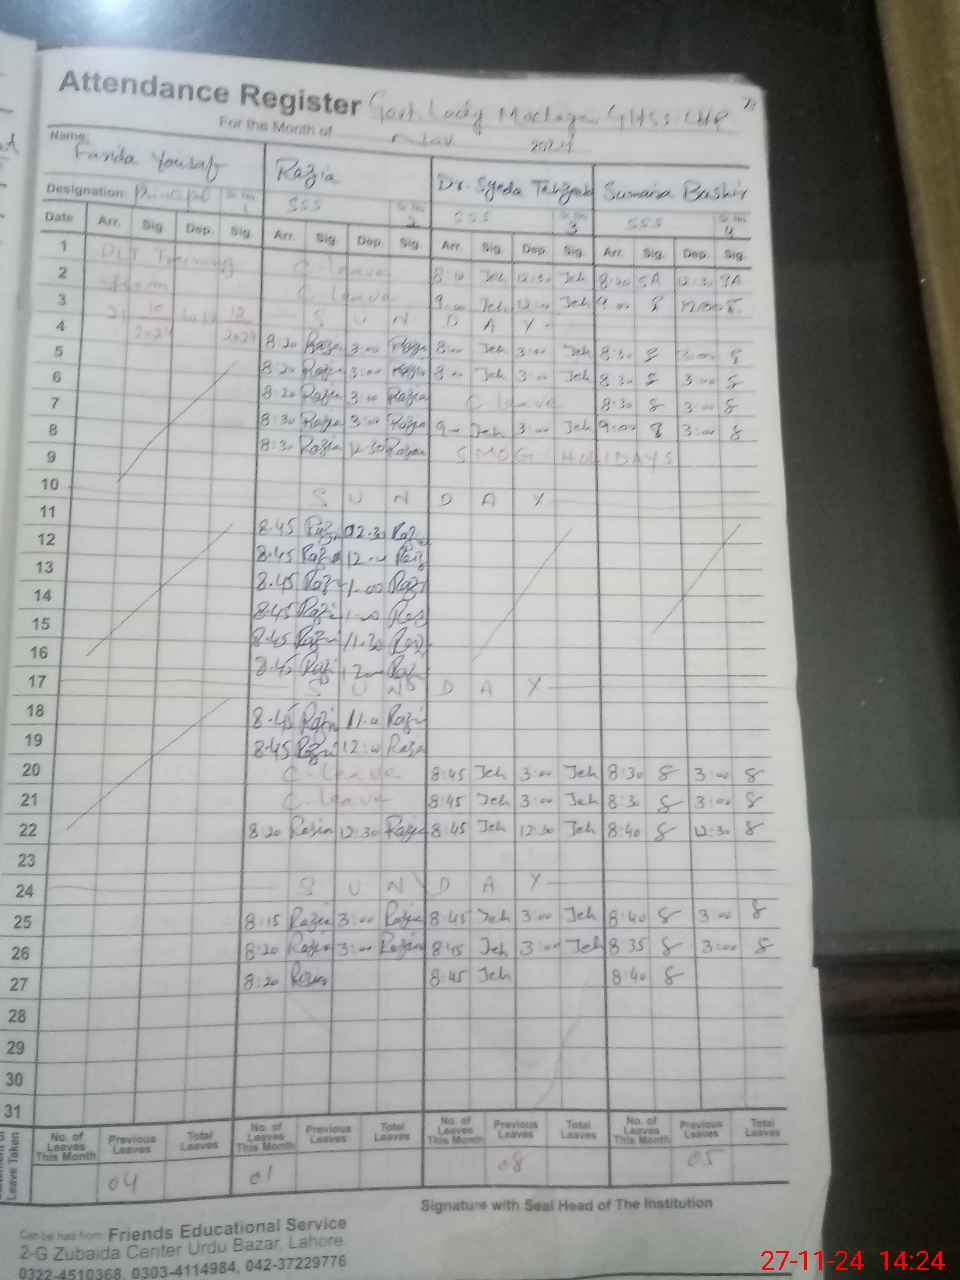 Attendance Register Govt. Lady
For the Month of Nov 2024
Name: Farida Yousaf Razia Dr. Syeda Sumaira Bashir
Designation: Principal Sr. No. 1 SSS Sr. No. 2 SSS Sr. No. 3 SSS Sr. No. 4
Date Arr. Sig. Dep. Sig. Arr. Sig. Dep. Sig. Arr. Sig. Dep. Sig. Arr. Sig. Dep. Sig.
1 Training C. leave 8:10 Jeh 12:30 Jeh 8:20 SA 12:30 SA
2 from C. leave 9:00 Jeh 12:00 Jeh 9:00 8
3 S U N D A Y
4 8:20 Razia 3:00 Razia 8:00 Jeh 3:00 Jeh 8:30 8 3:00 8
5 8:20 Razia 3:00 Razia 8:00 Jeh 3:00 Jeh 8:30 8 3:00 8
6 8:20 Razia 3:00 Razia C. leave 8:30 8 3:00 8
7 8:30 Razia 3:00 Razia 9:00 Jeh 3:00 Jeh 9:00 8 3:00 8
8 8:30 Razia 12:30 Razia SMOG HOLIDAYS
9
10 S U N D A Y
11 8.45 Razi Razi
12 8.45 Razi Razi
13 8.45 Razi 1.00 Razi
14 8.45 Razi Razi
15 8.45 Razi 11.30 Razi
16 8.45 Razi Razi
17 S U N D A Y
18 8.45 Razi Razi
19 8.45 Razi 12:00 Raza
20 C. leave 8:45 Jeh 3:00 Jeh 8:30 8 3:00 8
21 C. leave 8:45 Jeh 3:00 Jeh 8:30 8 3:00 8
22 8:20 Razia 12:30 Razia 8:45 Jeh 12:30 Jeh 8:40 8 12:30 8
23
24 S U N D A Y
25 8:15 Razia 3:00 Razia 8:45 Jeh 3:00 Jeh 8:40 8 3:00 8
26 8:20 Razia 3:00 Razia 8:45 Jeh 3:00 Jeh 8:35 8 3:00 8
27 8:20 Razia 8:45 Jeh 8:40 8
28
29
30
31
Leave Taken No. of Leaves This Month Previous Leaves Total Leaves No. of Leaves This Month Previous Leaves Total Leaves No. of Leaves This Month Previous Leaves Total Leaves No. of Leaves This Month Previous Leaves Total Leaves
04 01 08 05
Signature with Seal Head of The Institution
Can be had from: Friends Educational Service
2-G Zubaida Center Urdu Bazar, Lahore
0322-4510368, 0303-4114984, 042-37229776
27-11-24 14:24